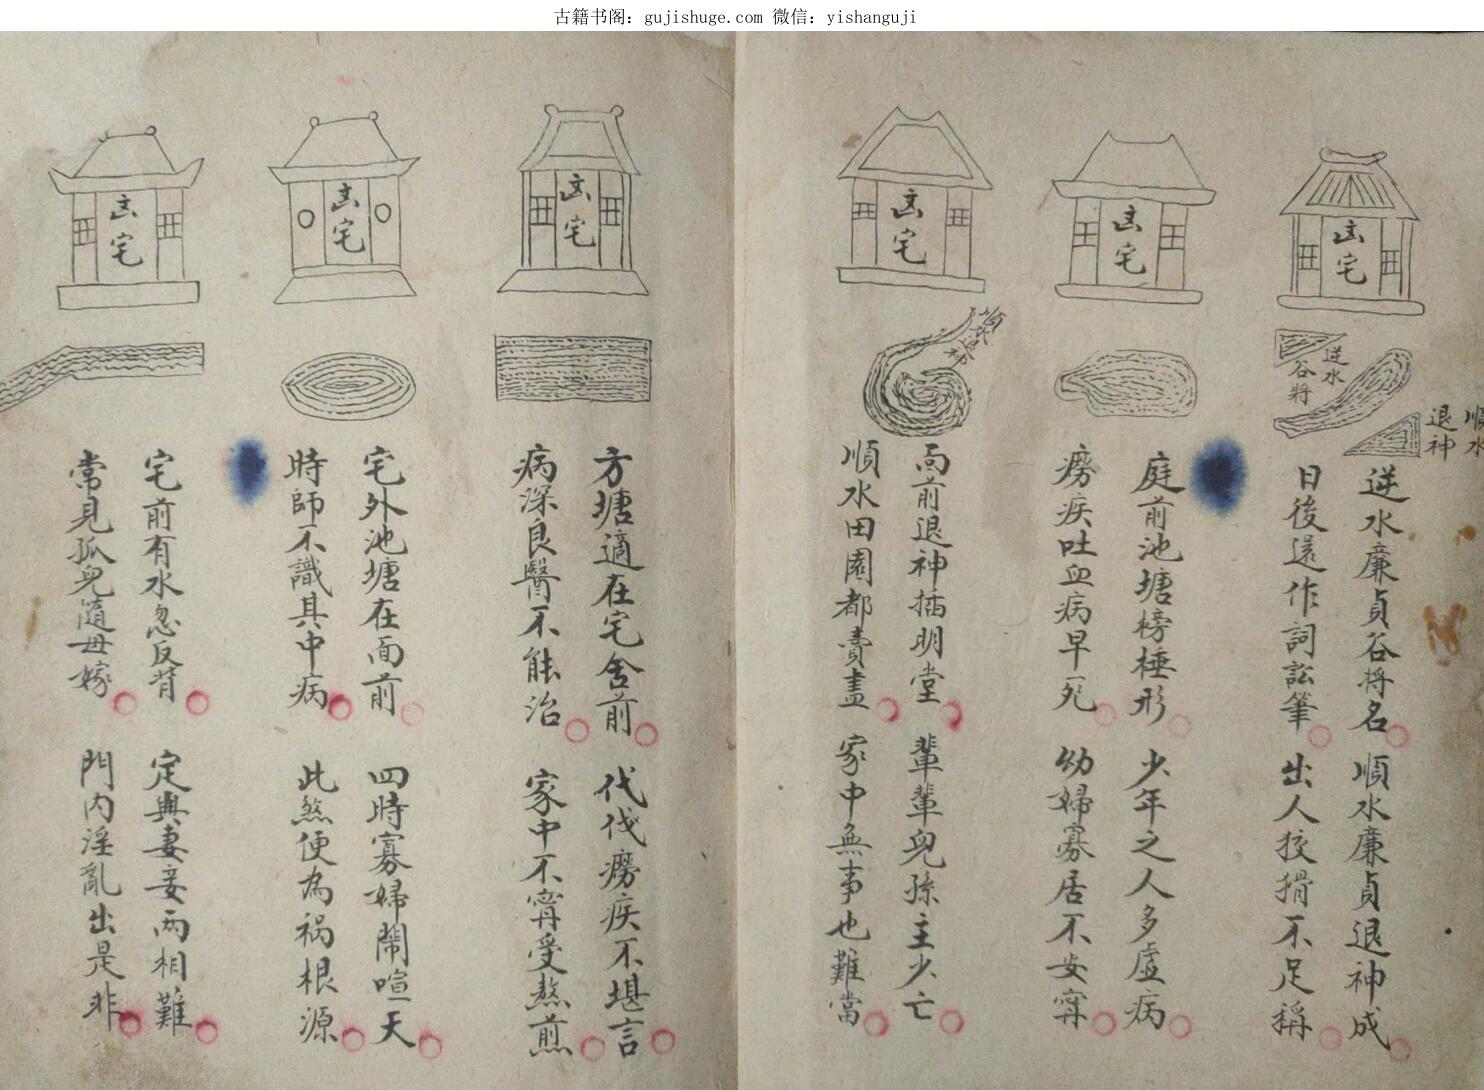 古籍书阁：gujishuge.com 微信：yishanguji
凶宅
逆水
谷将
順水
退神
逆水廉貞谷将名 順水廉貞退神成
日後還作詞訟筆 出人狡猾不足稱
凶宅
庭前池塘榜棰形 少年之人多虛病
癆疾吐血病早死 幼婦寡居不安寧
凶宅
順水退神
面前退神插明堂 輩輩兒孫主少亡
順水田園都賣盡 家中無事也難當
凶宅
方塘適在宅舍前 代代癆疾不堪言
病深良醫不能治 家中不寧受熬煎
凶宅
宅外池塘在面前 四時寡婦鬧喧天
時師不識其中病 此煞便為禍根源
凶宅
宅前有水忽反背 定與妻妾兩相難
常見孤兒隨母嫁 門內淫亂出是非